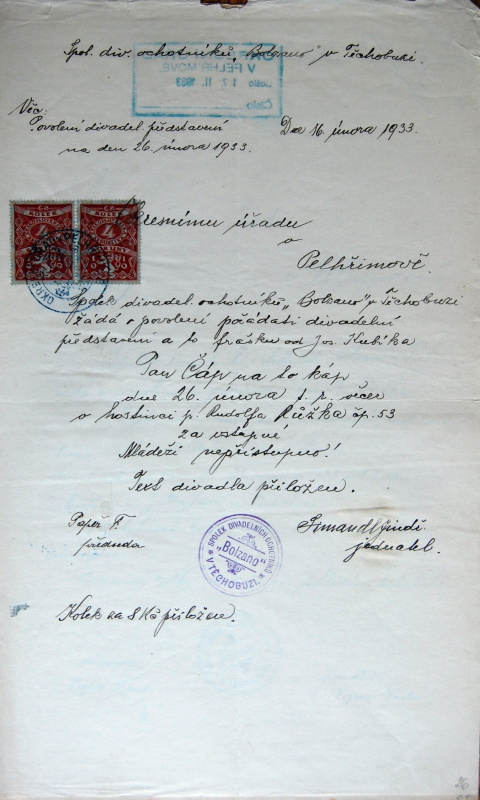 Spol. div. ochotníků „Bolzano" v Těchobuzi.
V PELHŘIMOVĚ
Došlo 17. II. 1933
Číslo
Věc:
Povolení divadel. představení
na den 26. února 1933.
Dne 16. února 1933.
KOLEK
4
KOLEK
4
Okresnímu úřadu
v
Pelhřimově.
Spolek divadel. ochotníků „Bolzano" v Těchobuzi
žádá o povolení pořádati divadelní
představení a to frašku od Jos. Kubíka
Pan Čáp na to káp
dne 26. února t. r. večer
v hostinci p. Rudolfa Růžka čp. 53
za vstupné
Mládeži nepřístupno!
Text divadla přiložen.
Papež F.
předseda
SPOLEK DIVADELNÍCH OCHOTNÍKŮ
„Bolzano"
V TĚCHOBUZI.
jednatel.
Kolek za 8 Kč přiložen.